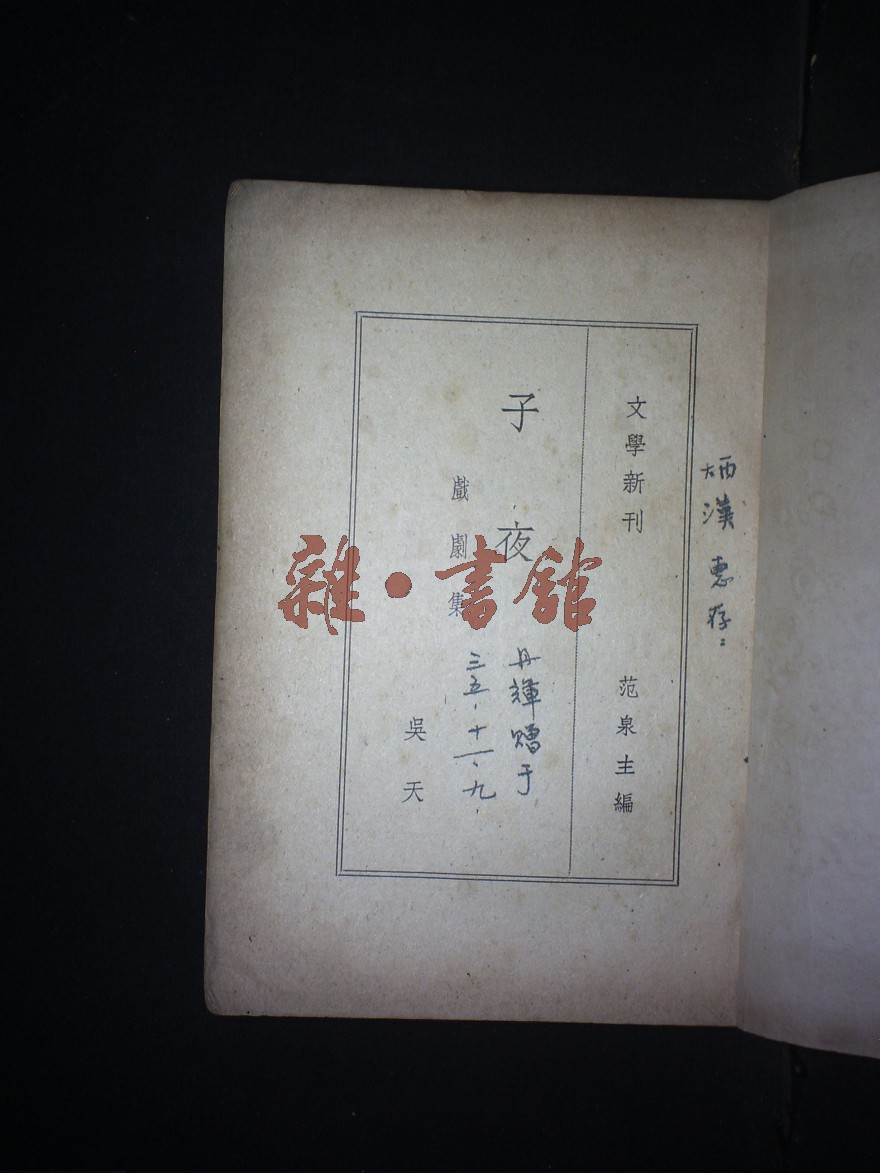 炳漢惠存:
文學新刊
范泉主編
子夜
丹輝贈于
三五、十一、九
戲劇集
吳天
雜·書館